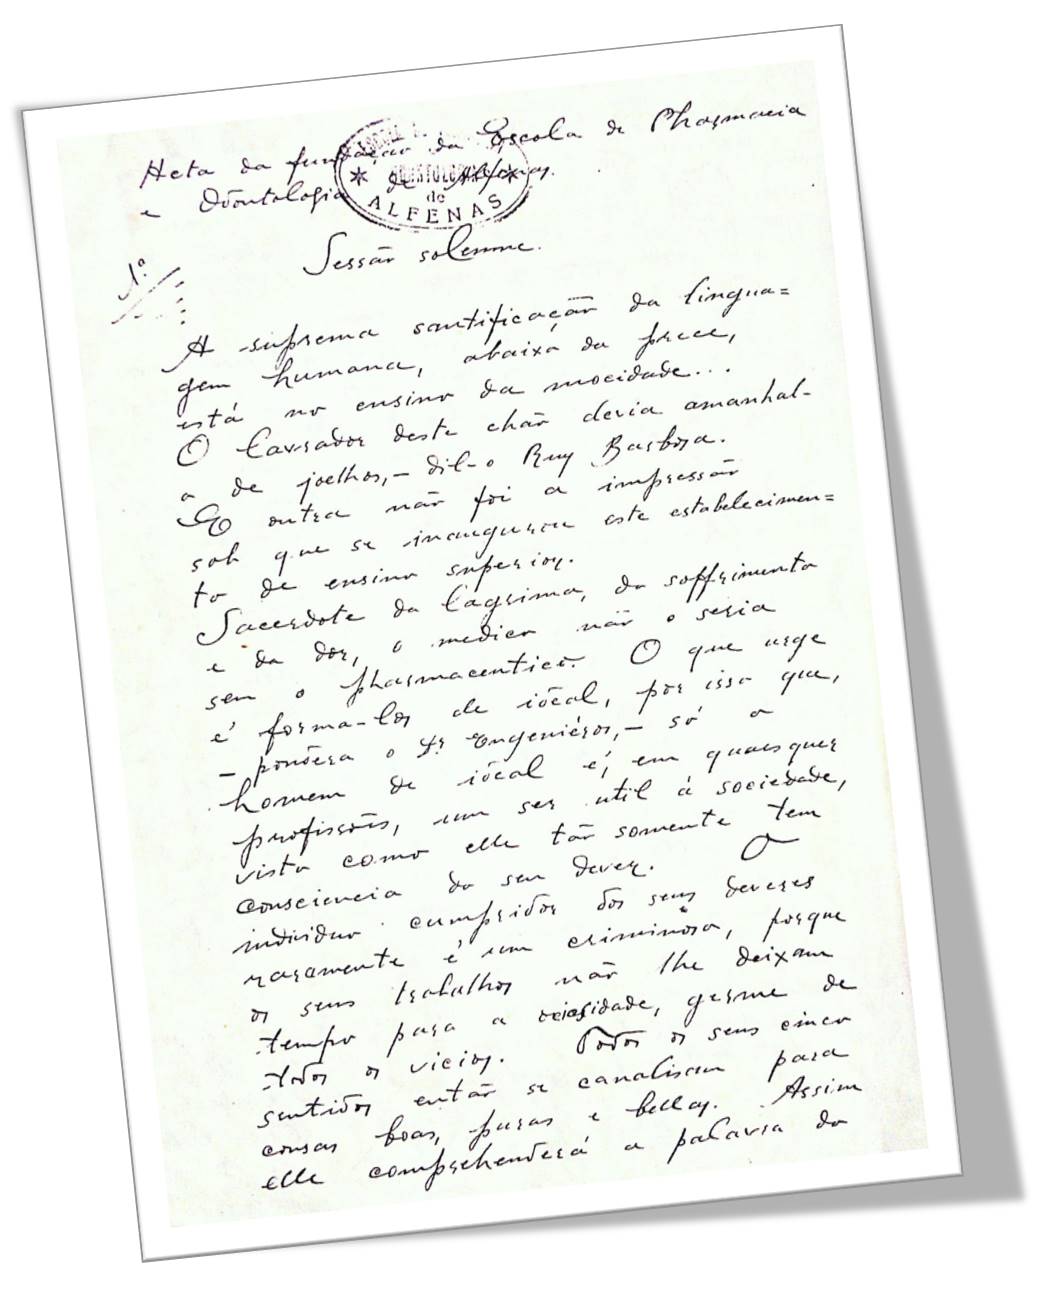 Acta da fundação da Escola de Pharmacia
e Odontologia de Alfenas.
de
ALFENAS
Sessão solemne.
1ª
A suprema santificação da lingua=
gem humana, abaixo da prece,
está no ensino da mocidade...
O lavrador deste chão devia amanhal-
o de joelhos, – dil-o Ruy Barbosa.
E outra não foi a impressão
sob que se inaugurou este estabelecimen=
to de ensino superior.
Sacerdote da lagrima, do soffrimento
e da dor, o medico não o seria
sem o pharmaceutico. O que urge
é forma-los de idéal, por isso que,
– pondera o Dr Engeniéros, – só o
homem de idéal é, em quaesquer
profissões, um ser util á sociedade,
visto como elle tão somente tem
consciencia do seu dever. O
individuo cumpridor dos seus deveres
raramente é um criminoso, porque
os seus trabalhos não lhe deixam
tempo para a ociosidade, germe de
todos os vicios. Todos os seus cinco
sentidos então se canalisam para
cousas boas, puras e bellas. Assim
elle comprehenderá a palavra do